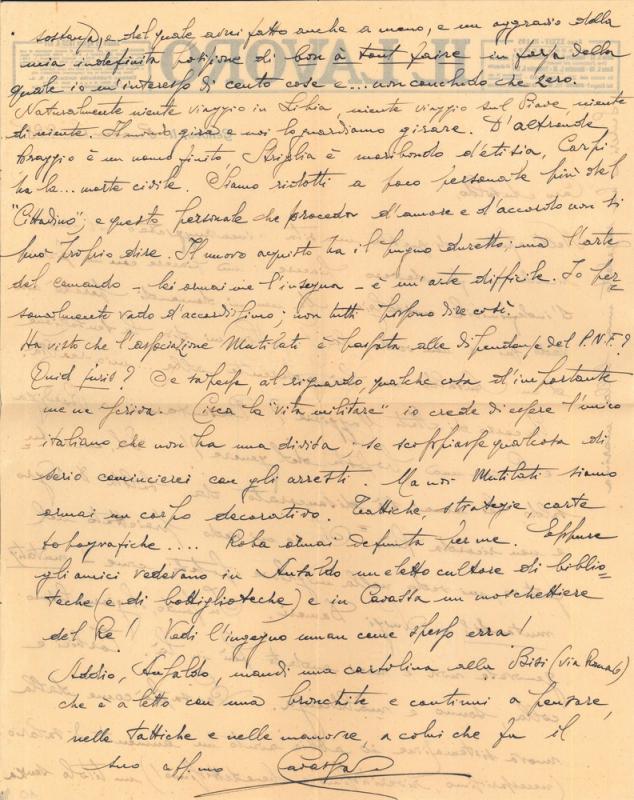 sostanza, e del quale avrei fatto anche a meno, e un aggravio della
mia indefinita posizione di bon à tout faire in forza della
quale io m'interesso di cento cose e... non conchiudo che zero.
Naturalmente niente viaggio in Libia niente viaggio sul Piave, niente
di niente. Il mondo gira e noi lo guardiamo girare. D'altronde
Poaggio è un uomo finito, Striglia è moribondo d'etisia, Carpi
ha la... morte civile. Siamo ridotti a poco personale più del
"Cittadino"; e questo personale che proceda d'amore e d'accordo non si
può proprio dire. Il nuovo acquisto ha il pugno duretto; ma l'arte
del comando – lei ormai me l'insegna – è un'arte difficile. Io per-
sonalmente vado d'accordissimo; non tutti possono dire così.
Ha visto che l'associazione Mutilati è passata alle dipendenze del P.N.F.?
Quid juris? Se sapesse, al riguardo, qualche cosa d'importante
me ne scriva. Circa la "vita militare" io credo di essere l'unico
italiano che non ha una divisa; se scoppiasse qualcosa di
serio comincierei con gli arresti. Ma noi Mutilati siamo
ormai un corpo decorativo. Tattiche, strategie, carte
topografiche.... Roba ormai defunta per me. Eppure
gli amici vedevano in Ansaldo un eletto cultore di biblio-
teche (e di bottiglioteche) e in Cavassa un moschettiere
del Re! Vedi l'ingegno uman come spesso erra!
Addio, Ansaldo, mandi una cartolina alla Bibi (via Roma 6)
che è a letto con una bronchite e continui a pensare,
nelle tattiche e nelle manovre, a colui che fu il
suo aff.mo Cavassa
IL LAVORO